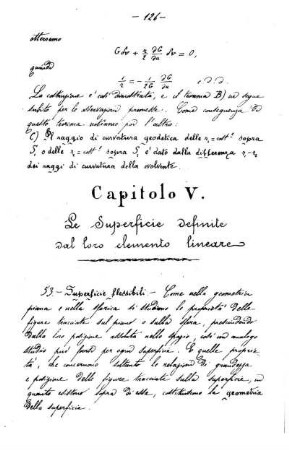 — 126 —
otterremo
quindi
La costruzione è così dimostrata, e il teorema B) ne segue
subito per le osservazioni premesse. Come conseguenza di
questo teorema abbiamo poi l'altro:
C) Il raggio di curvatura geodetica delle
sopra
è dato dalla differenza
dei raggi di curvatura della evolvente.
Capitolo V.
Le Superficie definite
dal loro elemento lineare
53. — Superficie flessibili — Come nella geometria
piana e nella sferica si studiano le proprietà delle
figure tracciate sul piano o sulla sfera, prescindendo
dalla loro posizione assoluta nello spazio, così un analogo
studio può farsi per ogni superficie. E quelle proprie-
tà, che concernono soltanto le relazioni di grandezza
e posizione delle figure tracciate sulla superficie, in
quanto esistono sopra di essa, costituiscono la geometria
della superficie.